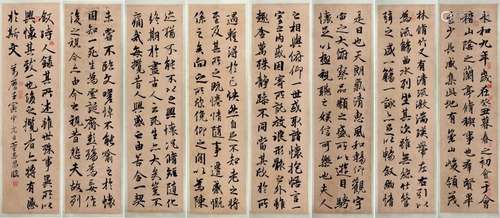 永和九年歲在癸丑暮春之初會于會
稽山陰之蘭亭脩稧事也羣賢畢
至少長咸集此地有崇山峻領茂
林脩竹又有清流激湍暎帶左右引以
為流觴曲水列坐其次雖無絲竹管
弦之盛一觴一詠亦足以暢敘幽情
是日也天朗氣清惠風和暢仰觀宇
宙之大俯察品類之盛所以遊目騁
懷足以極視聽之娛信可樂也夫人
之相與俯仰一世或取諸懷抱悟言一
室之內或因寄所託放浪形骸之外雖
趣舍萬殊靜躁不同當其欣於所
遇輒得於己快然自足不知老之將
至及其所之既惓情隨事遷感慨
係之矣向之所欣俛仰之閒以為陳
迹猶不能不以之興懷況脩短隨化
終期於盡古人云死生亦大矣豈不
痛哉每攬昔人興感之由若合一契
未嘗不臨文嗟悼不能喻之於懷
固知一死生為虛誕齊彭殤為妄作
後之視今亦由今之視昔悲夫故列
敘時人錄其所述雖世殊事異所以
興懷其致一也後之攬者亦將有感
於斯文 萬曆壬寅中元董其昌臨